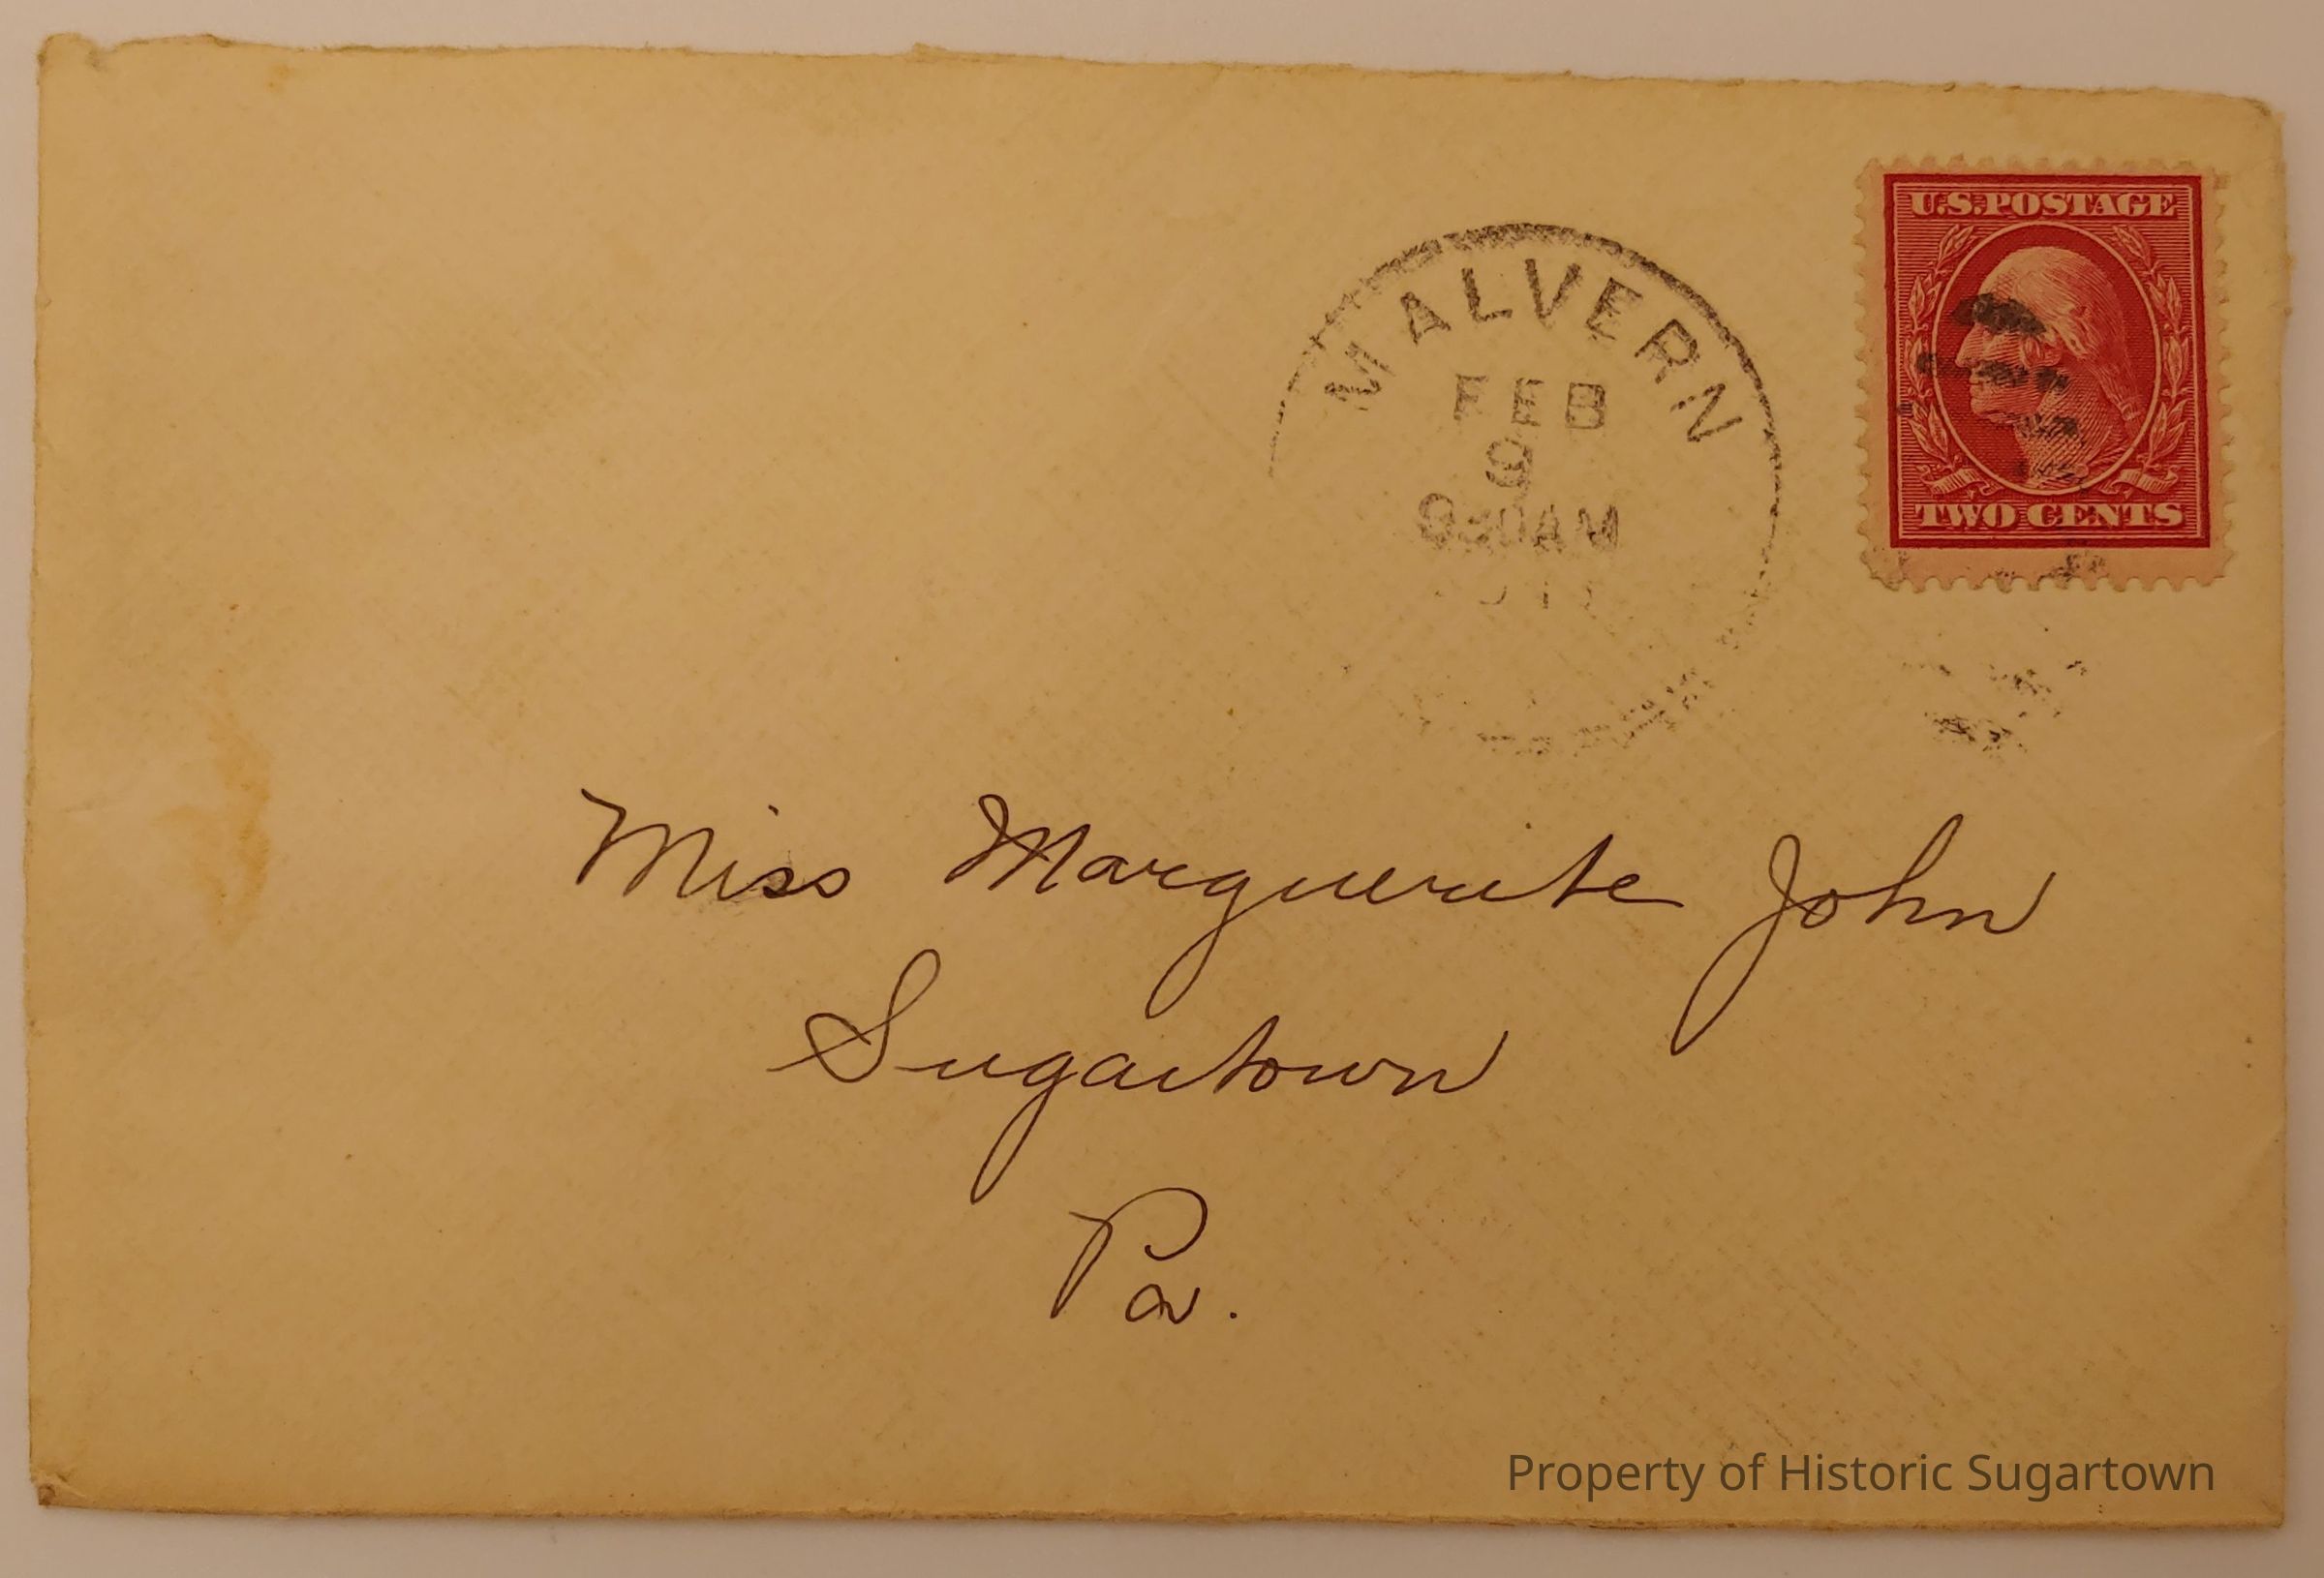 U.S. POSTAGE
TWO CENTS
MALVERN
FEB
9
AM
Miss Marguerite John
Sugartown
Pa.
Property of Historic Sugartown